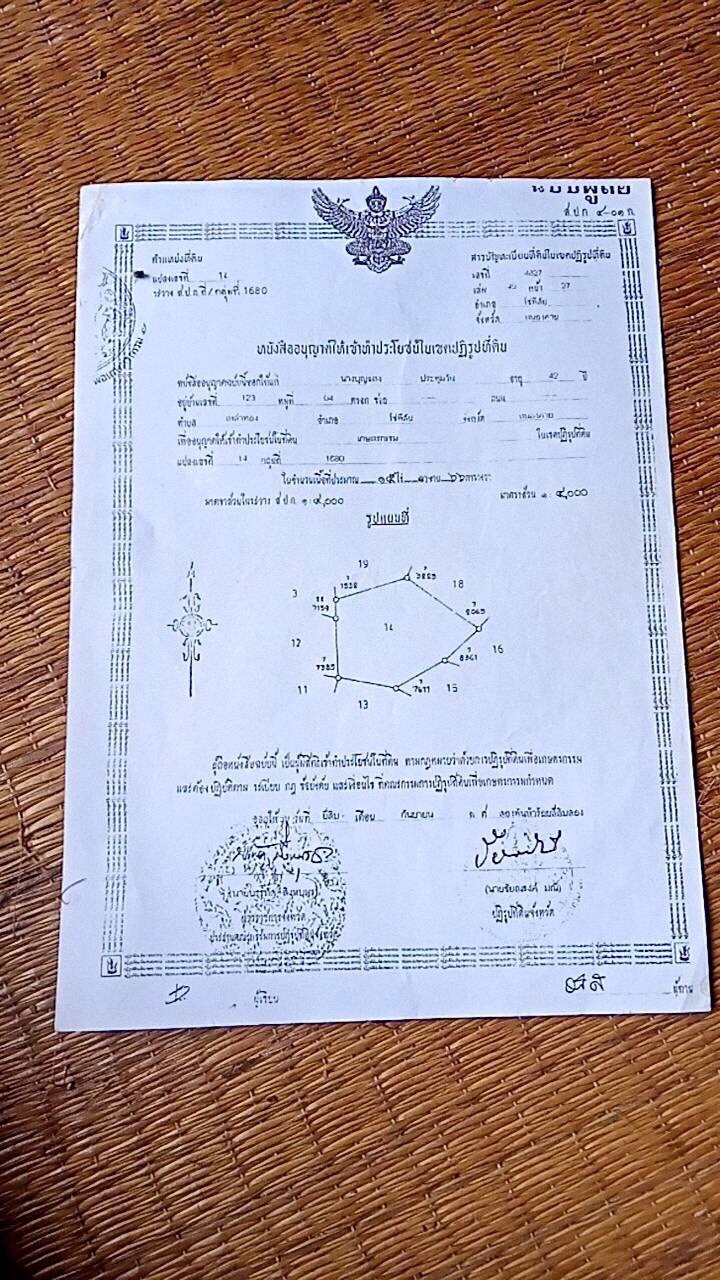 ส.ป.ก. ๔-๐๑ ก.
ตำแหน่งที่ดิน
แปลงเลขที่ 14
ระวาง ส.ป.ก.ที่/กลุ่มที่ 1680
สารบัญทะเบียนที่ดินในเขตปฏิรูปที่ดิน
เลขที่ 4827
เล่ม 49 หน้า 27
อำเภอ โซ่พิสัย
จังหวัด หนองคาย
หนังสืออนุญาตให้เข้าทำประโยชน์ในเขตปฏิรูปที่ดิน
หนังสืออนุญาตฉบับนี้ออกให้แก่ อายุ 42 ปี
อยู่บ้านเลขที่ 123 หมู่ที่ 04 ตรอก ซอย ถนน
ตำบล เหล่าทอง อำเภอ โซ่พิสัย จังหวัด หนองคาย
เพื่ออนุญาตให้เข้าทำประโยชน์ในที่ดิน เกษตรกรรม ในเขตปฏิรูปที่ดิน
แปลงเลขที่ 14 กลุ่มที่ 1680
ในจำนวนเนื้อที่ประมาณ ๑๕ ไร่ ๓ งาน ๖๖ ตารางวา
มาตราส่วนในระวาง ส.ป.ก. ๑ : ๔,๐๐๐ มาตราส่วน ๑ : ๔,๐๐๐
รูปแผนที่
19
3
18
14
12
16
11
13
15
ผู้ถือหนังสือฉบับนี้ เป็นผู้มีสิทธิเข้าทำประโยชน์ในที่ดิน ตามกฎหมายว่าด้วยการปฏิรูปที่ดินเพื่อเกษตรกรรม
และต้องปฏิบัติตาม ระเบียบ กฎ ข้อบังคับ และเงื่อนไข ที่คณะกรรมการปฏิรูปที่ดินเพื่อเกษตรกรรมกำหนด
ออกให้ ณ วันที่ ยี่สิบ เดือน กันยายน พ.ศ. สองพันห้าร้อยสี่สิบสอง
ผู้ว่าราชการจังหวัด
ประธานคณะกรรมการปฏิรูปที่ดินจังหวัด
(นายชัยณรงค์ มณี)
ปฏิรูปที่ดินจังหวัด
ผู้เขียน
ผู้ทาน